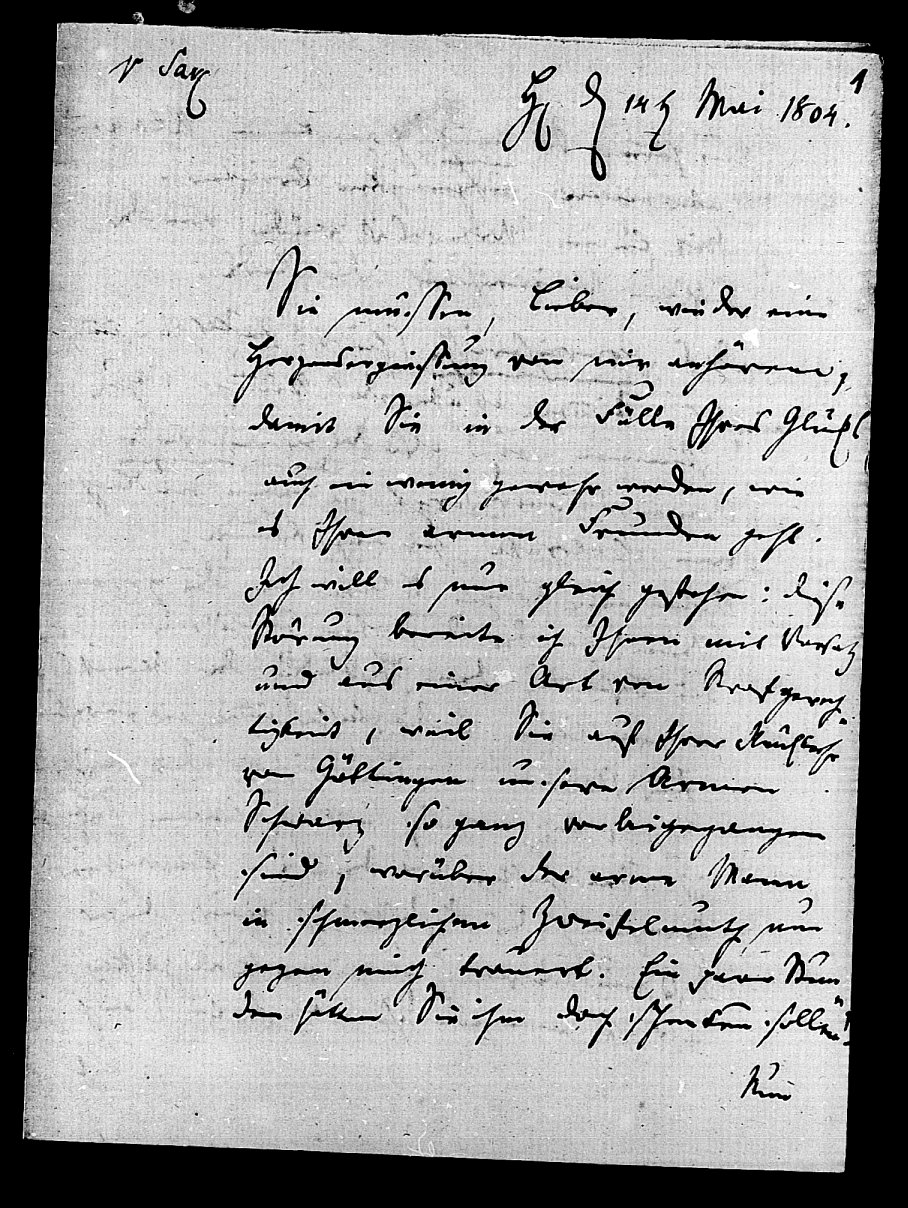 v Sax
1
H d 14t Mai 1804.
Sie müssen, Lieber, wieder eine
Herzensergiessung von mir anhören,
damit Sie in der Fülle Ihres Glücks
auch ein wenig gewahr werden, wie
es Ihren armen Freunden geht.
Ich will es nur gleich gestehen: diese
Störung bereite ich Ihnen mit Vorsatz
und aus einer Art von Strafgerech
tigkeit, weil Sie auf Ihrer Rückkehr
von Göttingen unsern Armen
Schwarz so ganz vorbeigegangen
sind, worüber der arme Mann
in schmerzlichem Zweifelmuth nun
gegen mich trauert. Ein paar Stun
den hätten Sie ihm doch schenken sollen!
Nun